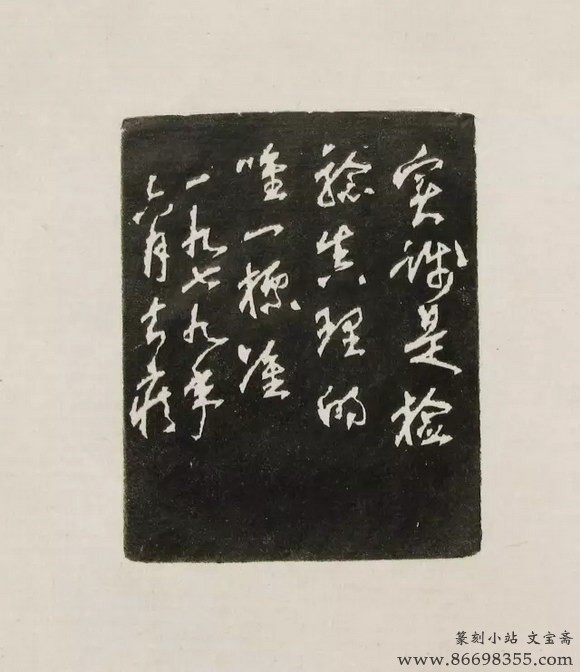 实践是检
验真理的
唯一标准
一九七九年
六月去疾
篆刻小站 文宝斋
www.86698355.com